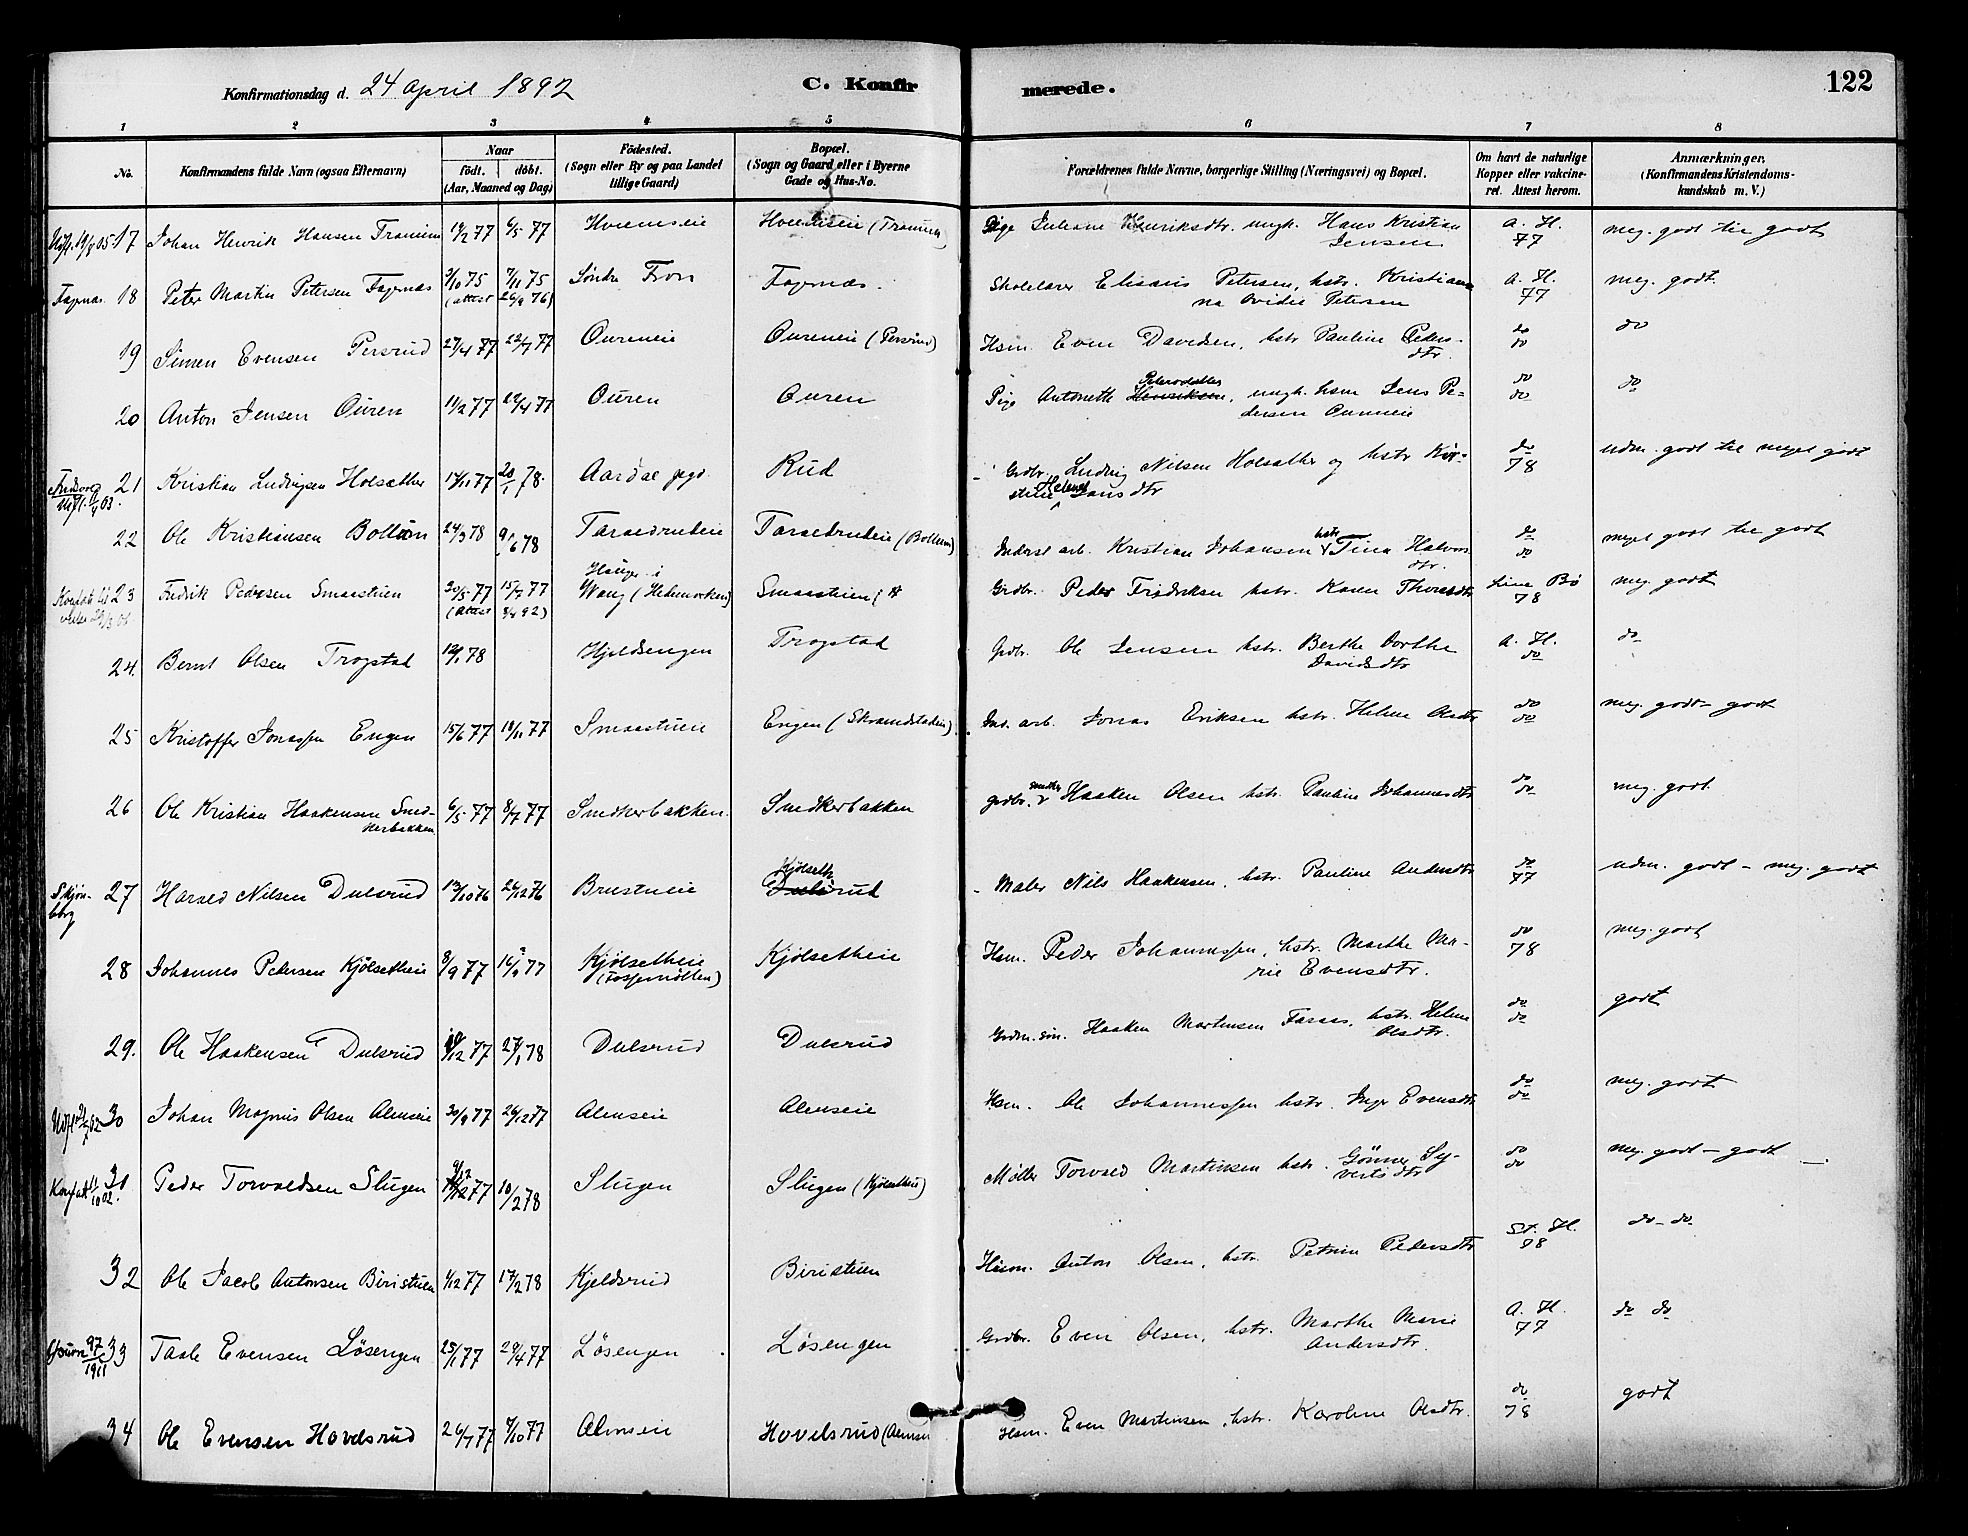 Konfirmationsdag d. 24 April 1892 C. Konfir merede. 122
1 2 3 4 5 6 7 8
No. Konfirmandens fulde Navn (ogsaa Efternavn) Naar födt. döbt. (Aar, Maaned og Dag) Födested. (Sogn eller By og paa Landet tillige Gaard) Bopæl. (Sogn og Gaard eller i Byerne Gade og Hus-No. Forældrenes fulde Navne, borgerlige Stilling (Næringsvei) og Bopæl. Om havt de naturlige Kopper eller vakcineret. Attest herom. Anmærkninger. (Konfirmandens Kristendomskundskab m. V.)
17 Johan Henrik Hansen 19/2 77 6/5 77 Hoelnseie Pige Juliane Henriksdtr. ungk. Hans Kristian Jensen A. H. 77 meg. godt til godt
Fagernæs 18 Peter Martin Petersen Fagernæs 3/10 75 7/11 75 (attest 26/9 76) Söndre Fron Fagernæs. Skolelærer Elisæus Petersen, hstr. Kristiana Ovidie Petersen A. H. 77 meg. godt.
19 Simen Evensen Persrud 27/4 77 22/7 77 Oureneie Oureneie (Persrud) Hsm. Even Davidsen, hstr Pauline Pedersdtr. do do do
20 Anton Jensen Ouren 11/2 77 22/4 77 Ouren Ouren Pige Antonette Petersdatter, ungk. hsm Jens Pedersen do do do
21 Kristian Ludvigsen Holsæther 14/11 77 20/1 78. Aardal pgd. Rud Grdbr. Ludvig Nilsen Holsæther og hstr Kirstine Helene Hansdtr do 78 udm. godt til meget godt
22 Ole Kristiansen Bollum 24/3 78 9/6 78 Taralrudeie Taralrudeie (Bollum) Inderst arb. Kristian Johansen hstr Tina Halvorsdtr. do do meget godt til godt
23 Fredrik Pedersen Smaastuen 30/5 77 15/7 77 (Attest 3/4 92) Hauger i Vang (Hedemarken) Smaastuen Grdbr. Peder Fredriksen hstr. Karen Thoresdtr Bö 78 meg. godt
24. Bernt Olsen Trogstad 12/1 78 Hjeldsengen Trogstad Grdbr. Ole Jensen hstr. Berthe Dorthe Davidsdtr A. H. do do
25 Kristoffer Jonassen Engen 15/6 77 18/11 77 Smaastueie Engen (Skramstadeie) Ind. arb. Jonas Eriksen hstr. Helene Olsdtr do do meg. godt - godt
26 Ole Kristian Haakensen Snedkerbakken 6/5 77 8/7 77 Snedkerbakken. Snedkerbakken grdbr. snedker Haaken Olsen hstr. Pauline Johannesdtr do do meg. godt.
Skjönborg 27 Harald Nilsen Dulsrud 13/10 76 26/12 76 Brustueie Kjölseth Dulsrud Maler Nils Haakensen, hstr. Pauline Andersdtr do 77 udm. godt - meg. godt
28 Johannes Pedersen Kjölsetheie 8/9 77 16/9 77 Kjölsetheie Kjölsetheie Hsm. Peder Johannessen, hstr. Marthe Marie Evensdtr. do 78 meg. godt
29. Ole Haakensen Dulsrud 12 77 27/1 78 Dulsrud Dulsrud Grdm. sön. Haaken Martinsen Faraas, hstr. Helene Olsdtr. do do godt
30 Johan Magnus Olsen Almseie 30/9 77 26/12 77 Almseie Almseie Hsm. Ole Johannessen hstr. Inger Evensdtr do do meg. godt
31 Peder Torvaldsen Slugen 9/12 77 10/2 78 Slugen Slugen (Kjölsetheie) Möller Torvald Martinsen hstr. Gönner Syvertsdtr do do meg. godt - godt -.
32 Ole Jacob Antonsen Biristuen 1/12 77 17/2 78 Kjeldsrud Biristuen Hsm. Anton Olsen, hstr. Petrine Pedersdtr St. H. 78 do - do
33 Taale Evensen Lösengen 25/1 77 29/4 77 Lösengen Lösengen Grdbr. Even Olsen, hstr. Marthe Marie Andersdtr. A. H. 77 do do
34 Ole Evensen Hovelsrud 26/7 77 7/10 77 Almseie Hovelsrud (Almsei Hsm. Even Martinsen, hstr. Karoline Olsdtr. do 78 godt